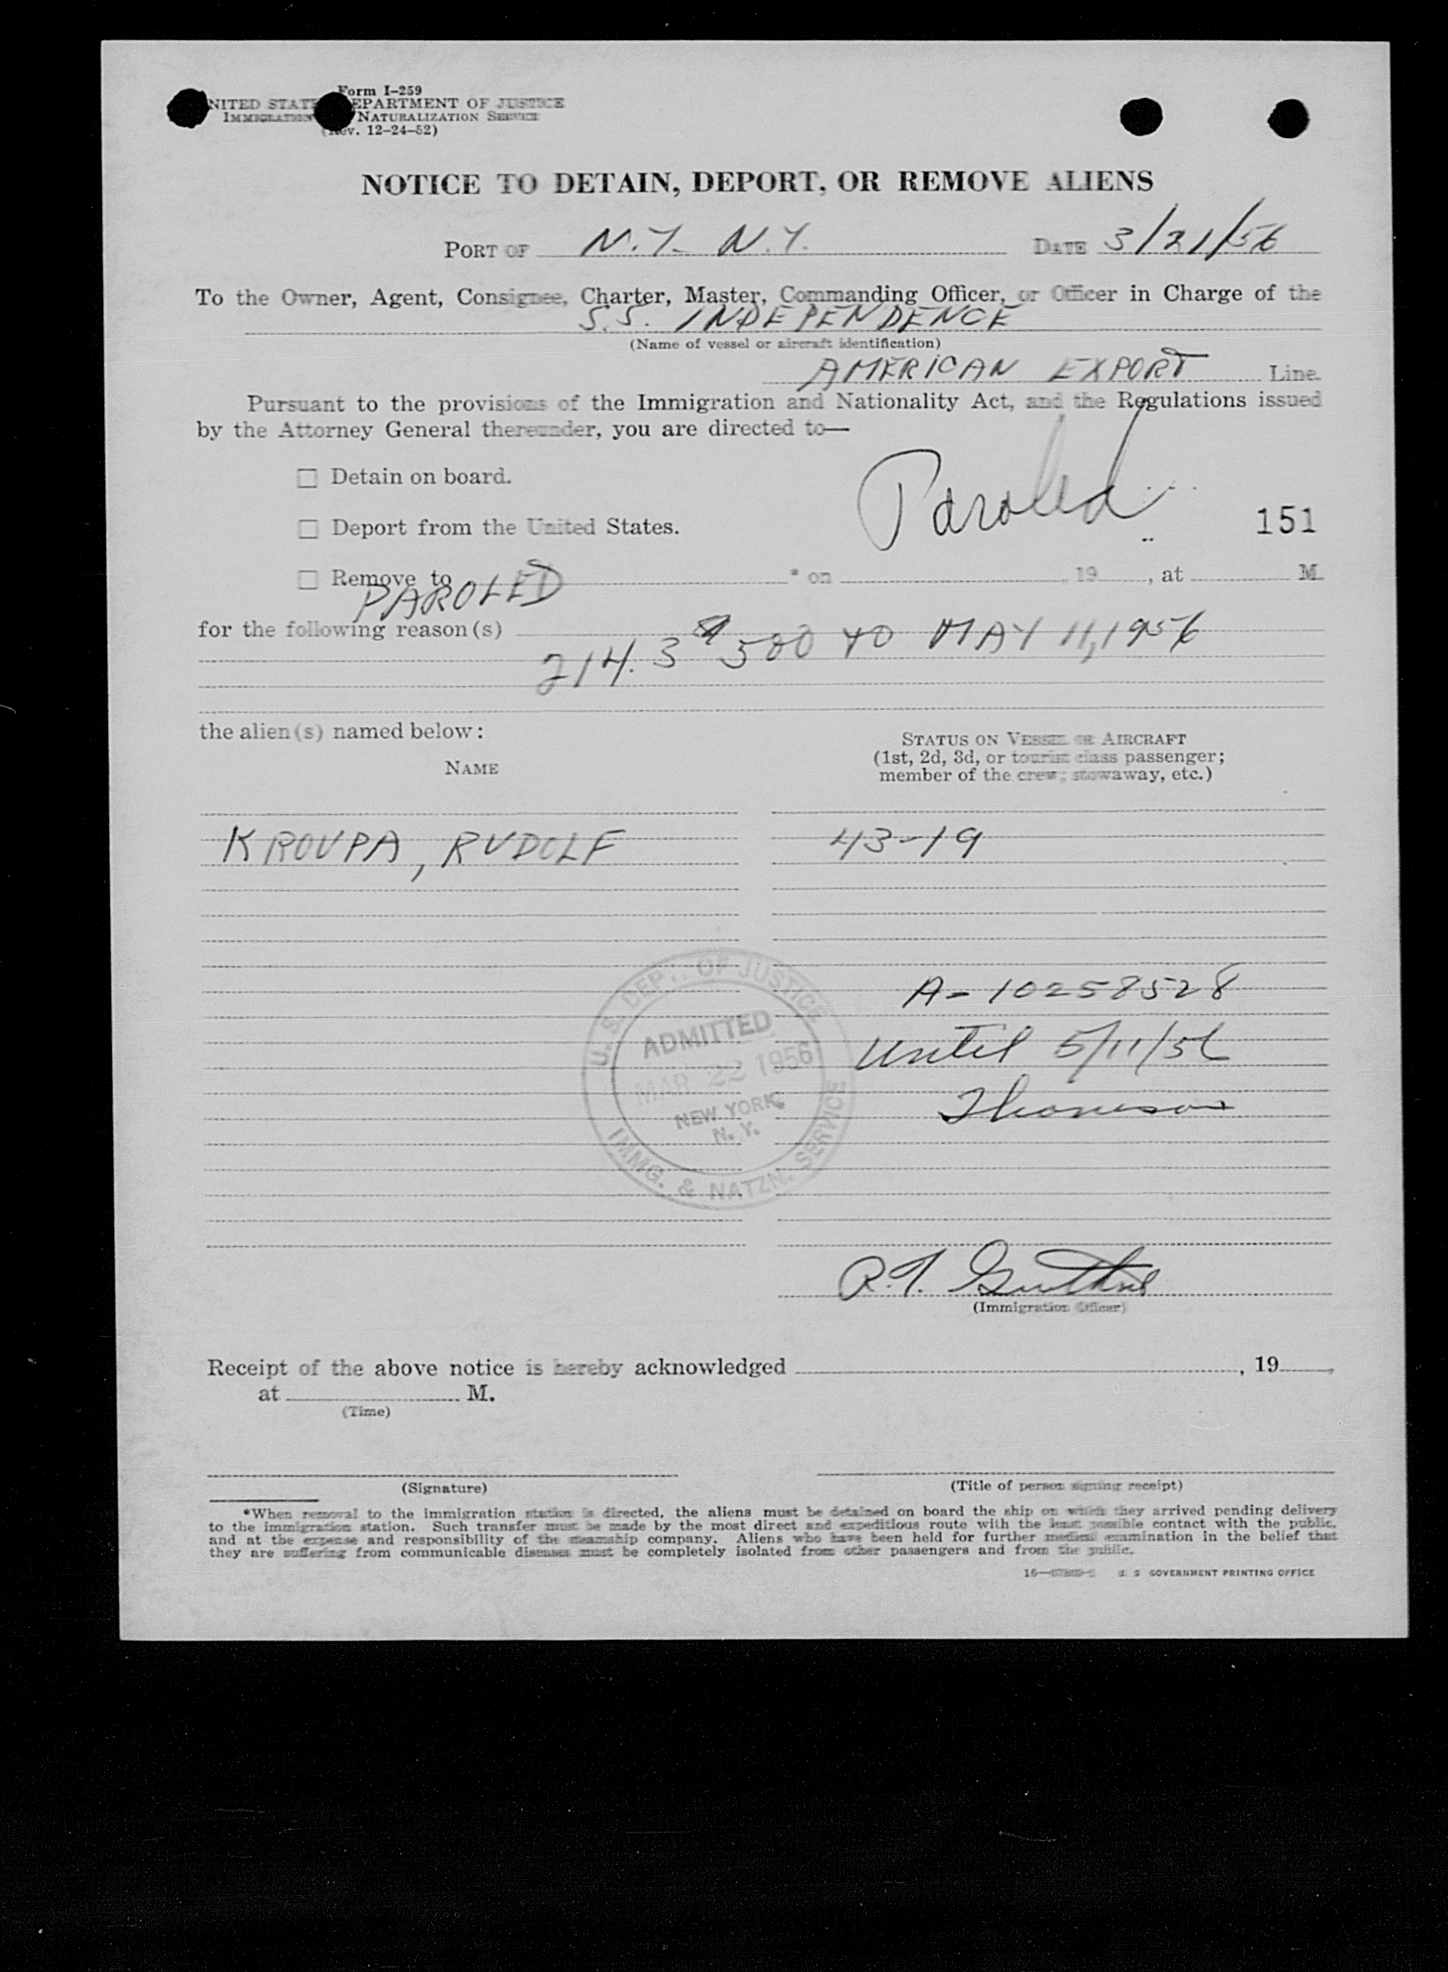 Form I-259
UNITED STATES DEPARTMENT OF JUSTICE
IMMIGRATION NATURALIZATION SERVICE
(Rev. 12-24-52)
NOTICE TO DETAIN, DEPORT, OR REMOVE ALIENS
PORT OF N.Y. N.Y. DATE 3/21/56
To the Owner, Agent, Consignee, Charter, Master, Commanding Officer, or Officer in Charge of the
S.S. INDEPENDENCE
(Name of vessel or aircraft identification)
AMERICAN EXPORT Line.
Pursuant to the provisions of the Immigration and Nationality Act, and the Regulations issued
by the Attorney General thereunder, you are directed to—
Detain on board.
Paroled
Deport from the United States. 151
Remove to * on , 19 , at M.
PAROLED
for the following reason(s)
214.3 500 TO MAY 11, 1956
the alien(s) named below:
STATUS ON VESSEL OR AIRCRAFT
(1st, 2d, 3d, or tourist class passenger;
member of the crew; stowaway, etc.)
NAME
KROUPA, RUDOLF 43-19
U. S. DEPT. OF JUSTICE
ADMITTED
MAR 22 1956
NEW YORK,
N. Y.
IMMG. & NATZN. SERVICE
A-10258528
Until 5/11/56
R.T. Guthrie
(Immigration Officer)
Receipt of the above notice is hereby acknowledged , 19 ,
at M.
(Time)
(Signature) (Title of person signing receipt)
*When removal to the immigration station is directed, the aliens must be detained on board the ship on which they arrived pending delivery
to the immigration station. Such transfer must be made by the most direct and expeditious route with the least possible contact with the public,
and at the expense and responsibility of the steamship company. Aliens who have been held for further medical examination in the belief that
they are suffering from communicable diseases must be completely isolated from other passengers and from the public.
U S GOVERNMENT PRINTING OFFICE